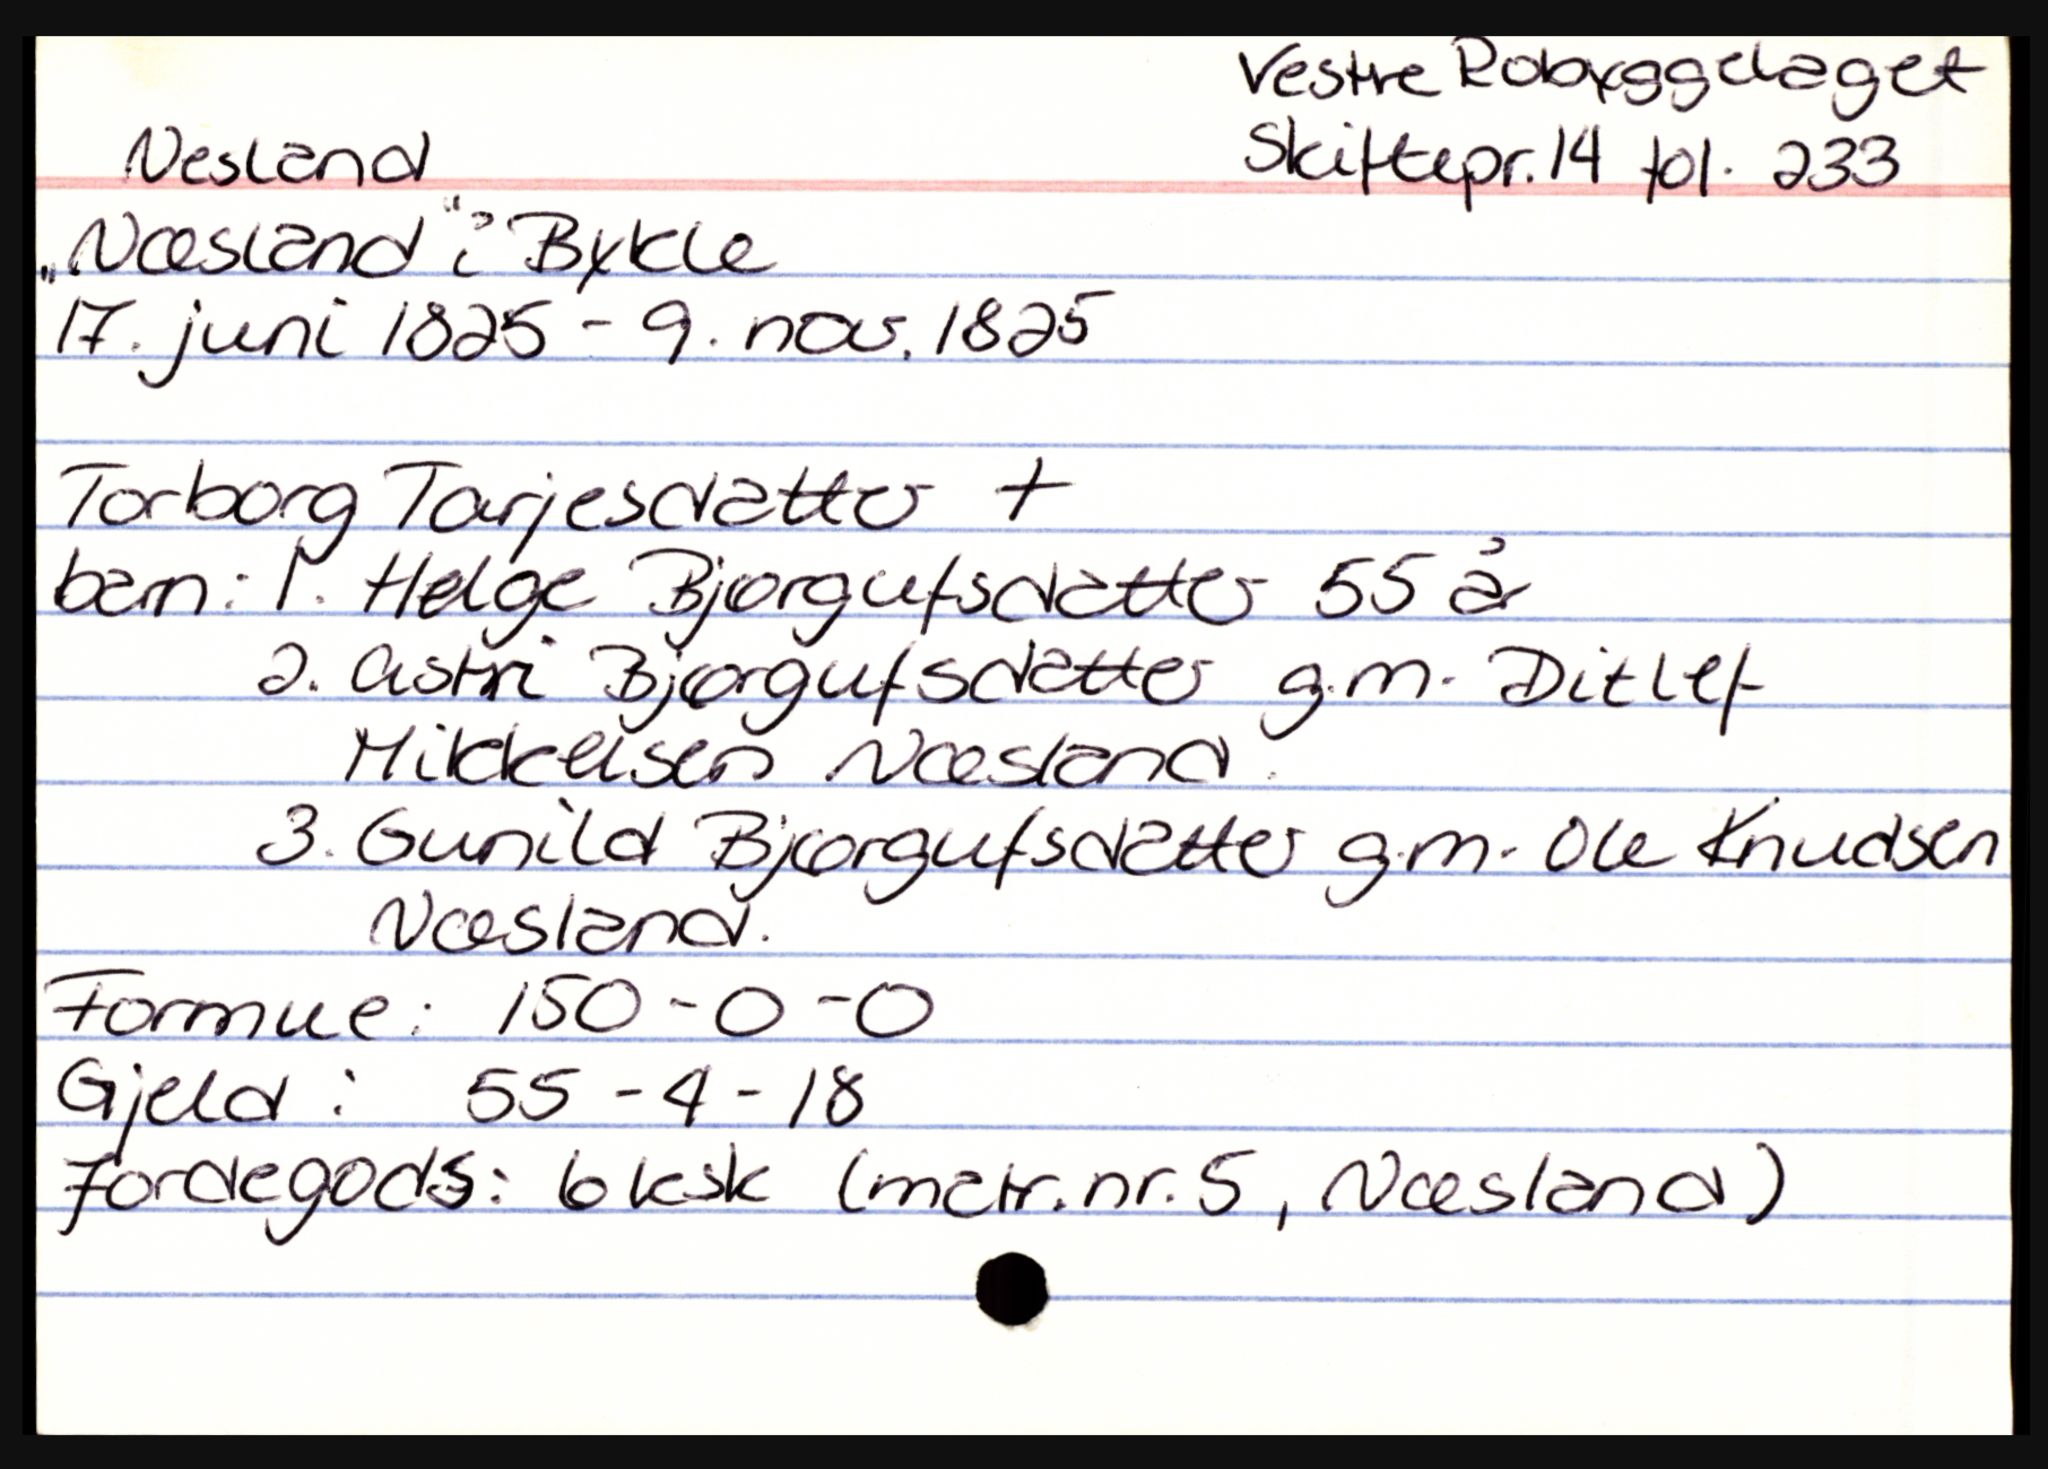 Vestre Robyggelaget
Nesland Skiftepr. 14 fol. 233
„Næsland“ i Bykle
17. juni 1825 - 9. nov. 1825
Torborg Tarjesdatter +
barn: 1. Helge Bjørgufsdatter 55 år
2. Astri Bjørgufsdatter g.m. Ditlef
Mikkelsen Næsland.
3. Gunild Bjørgufsdatter g.m. Ole Knudsen
Næsland.
Formue: 150-0-0
Gjeld: 55-4-18
Jordegods: 6 ksk (matr.nr. 5, Næsland)